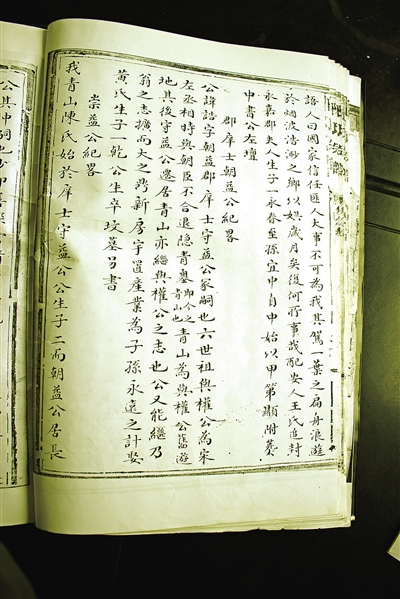 語人曰國家信任匪人大事不可為我其駕一葉之扁舟浪遊
於烟波浩渺之鄉以娛歲月矣後何所事哉配安人王氏追封
永嘉郡夫人生子一永泰至孫宜中自中始以甲第顯附葬
中書公左壇
郡庠士朝益公紀畧
公諱誥字朝益郡庠士守益公家嗣也六世祖與權公為宋
左丞相時與朝臣不合退隱青墓即今之青山也青山為與權公舊遊
地其後守益公遷居青山亦繼與權公之志也公又能繼乃
翁之志擴而大之剏新房宇置產業為子孫永遠之計娶
黃氏生子一乾公生卒坟墓另書
崇益公紀畧
我青山陳氏始於庠士守益公公生子二而朝益公居長